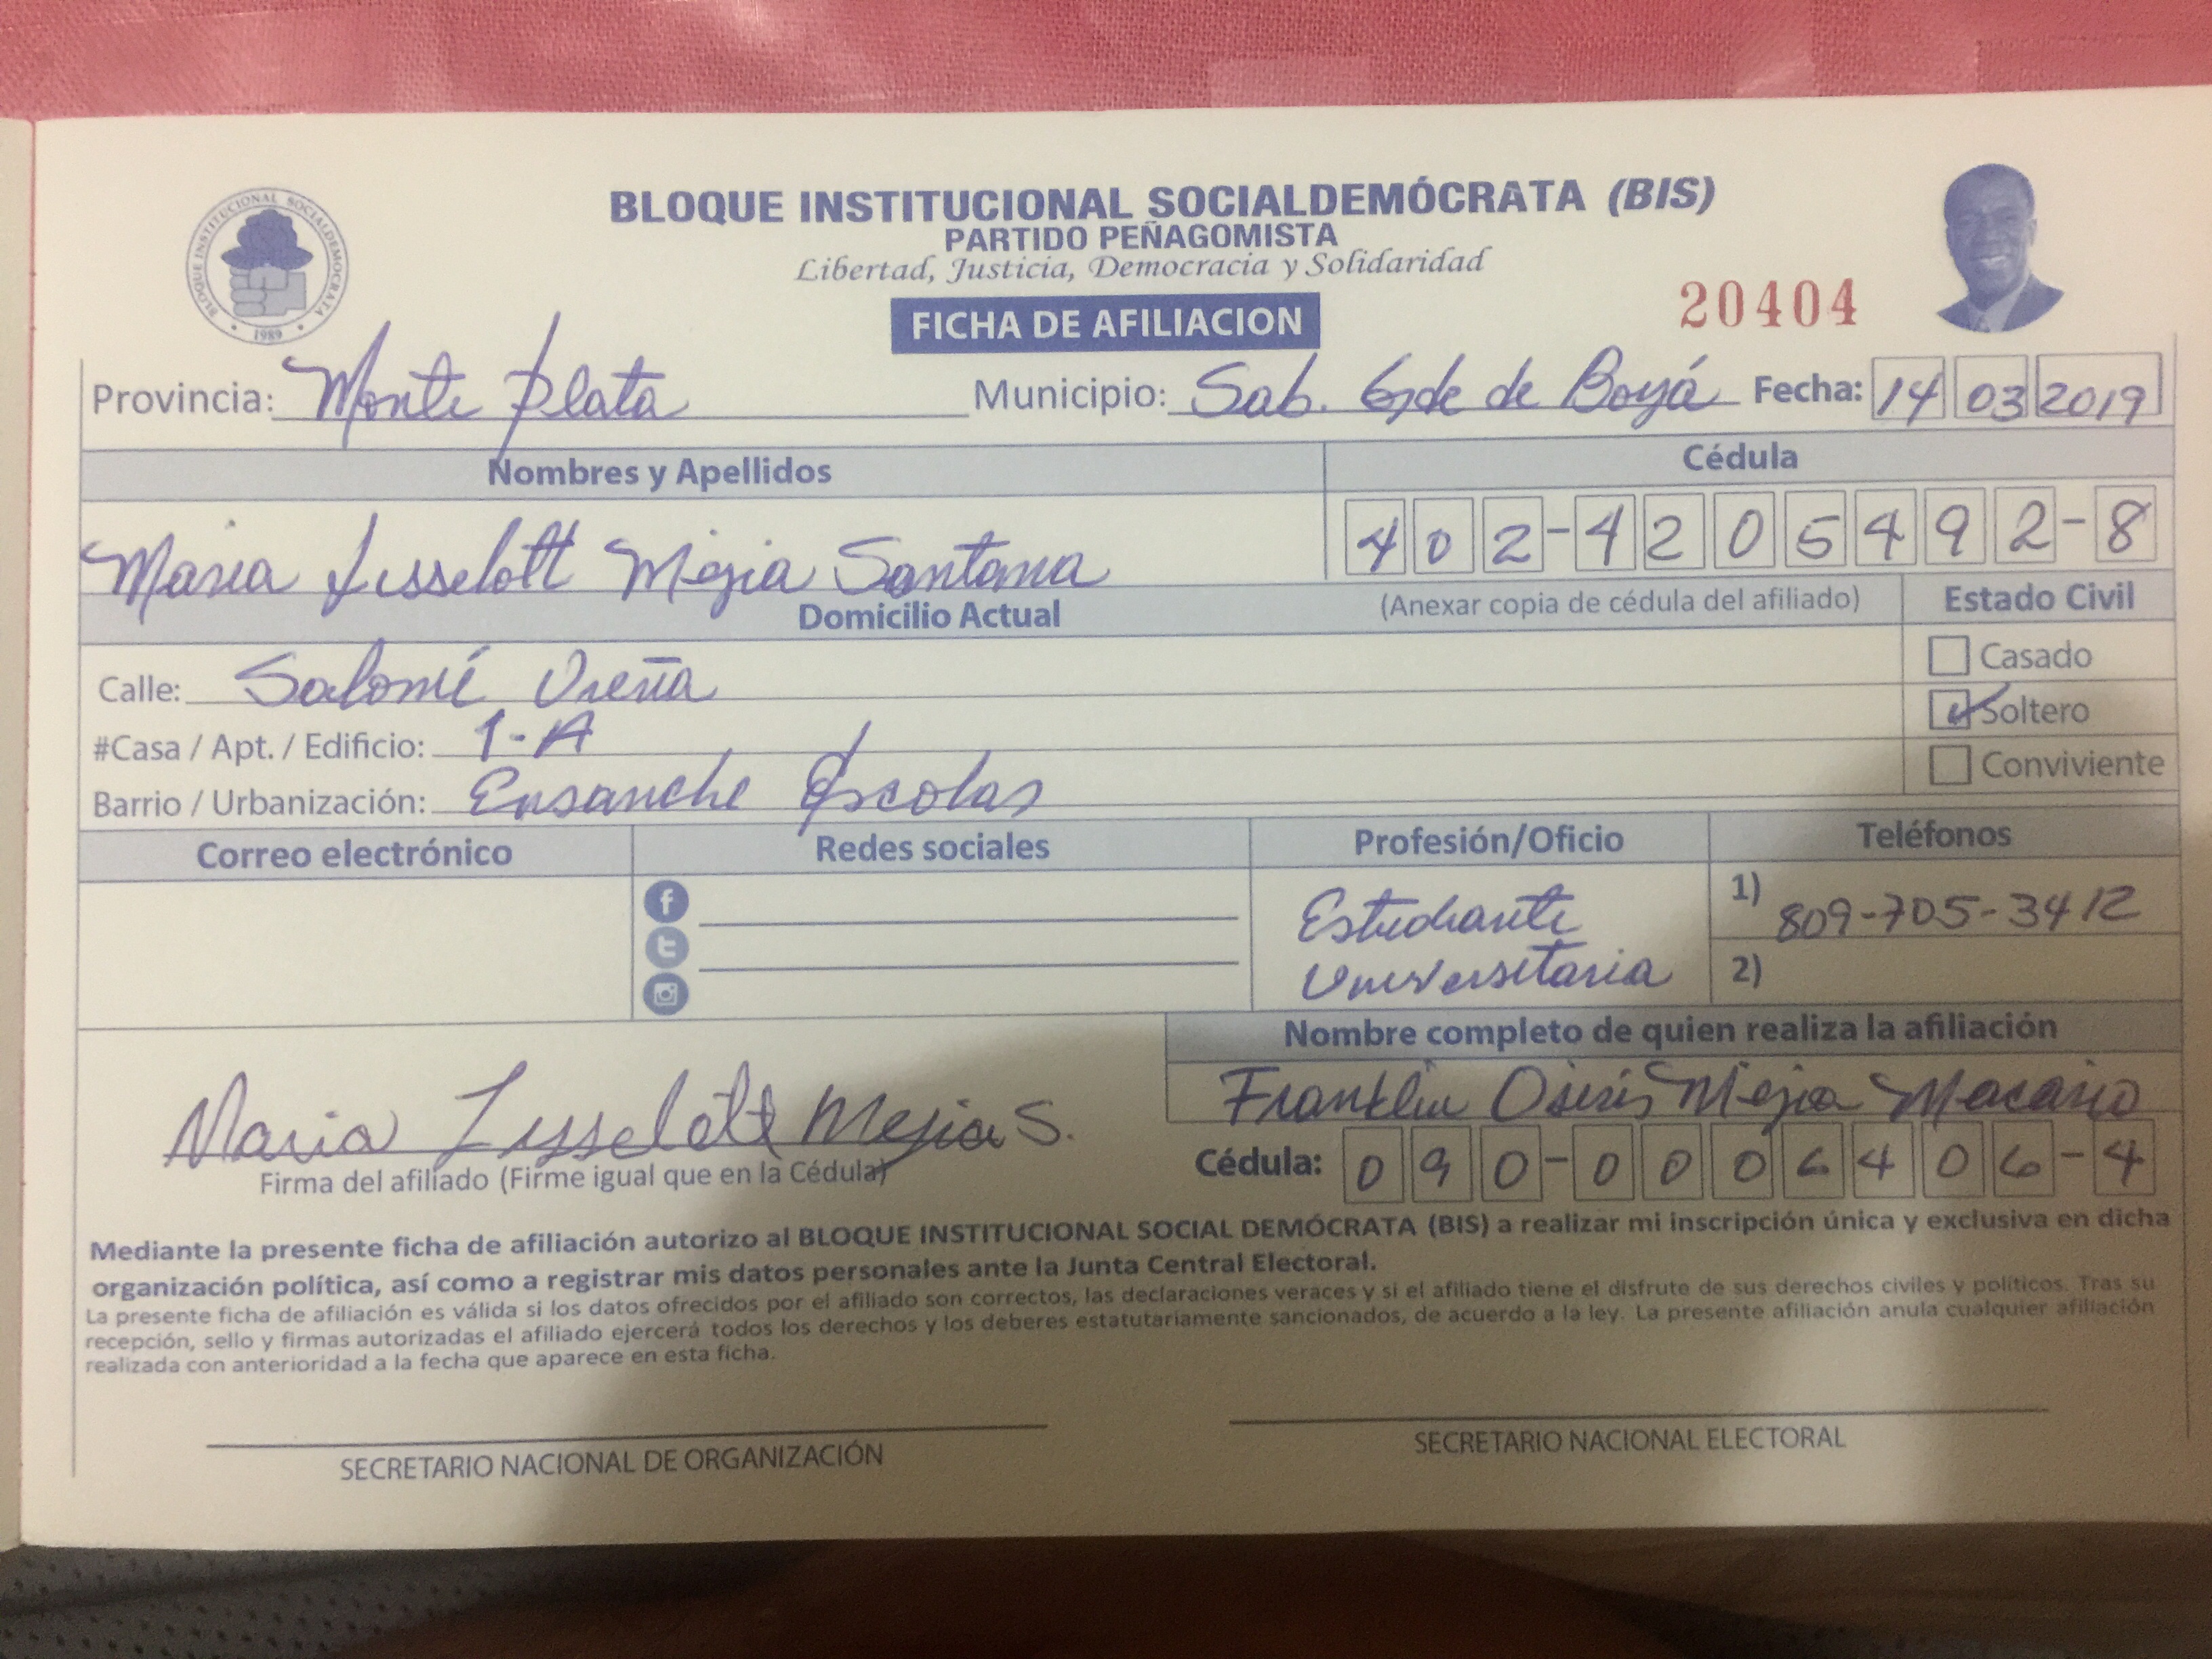 BLOQUE INSTITUCIONAL SOCIALDEMOCRATA
1989
BLOQUE INSTITUCIONAL SOCIALDEMÓCRATA (BIS)
PARTIDO PEÑAGOMISTA
Libertad, Justicia, Democracia y Solidaridad
FICHA DE AFILIACION
20404
Provincia: Monte Plata Municipio: Sab. Gde de Boyá Fecha: 14 03 2019
Nombres y Apellidos Cédula
Maria Lisselott Mejia Santana 402-4205492-8
Domicilio Actual (Anexar copia de cédula del afiliado) Estado Civil
Casado
Calle: Salomé Ureña
Soltero
#Casa / Apt. / Edificio: 1-A
Conviviente
Barrio / Urbanización: Ensanche
Correo electrónico Redes sociales Profesión/Oficio Teléfonos
Estudiante 1) 809-705-3412
Universitaria 2)
Nombre completo de quien realiza la afiliación
Franklin Osiris Mejia Macario
Maria Lysselott Mejia S.
Firma del afiliado (Firme igual que en la Cédula) Cédula: 090-0006406-4
Mediante la presente ficha de afiliación autorizo al BLOQUE INSTITUCIONAL SOCIAL DEMÓCRATA (BIS) a realizar mi inscripción única y exclusiva en dicha
organización política, así como a registrar mis datos personales ante la Junta Central Electoral.
La presente ficha de afiliación es válida si los datos ofrecidos por el afiliado son correctos, las declaraciones veraces y si el afiliado tiene el disfrute de sus derechos civiles y políticos. Tras su
recepción, sello y firmas autorizadas el afiliado ejercerá todos los derechos y los deberes estatutariamente sancionados, de acuerdo a la ley. La presente afiliación anula cualquier afiliación
realizada con anterioridad a la fecha que aparece en esta ficha.
SECRETARIO NACIONAL DE ORGANIZACIÓN SECRETARIO NACIONAL ELECTORAL